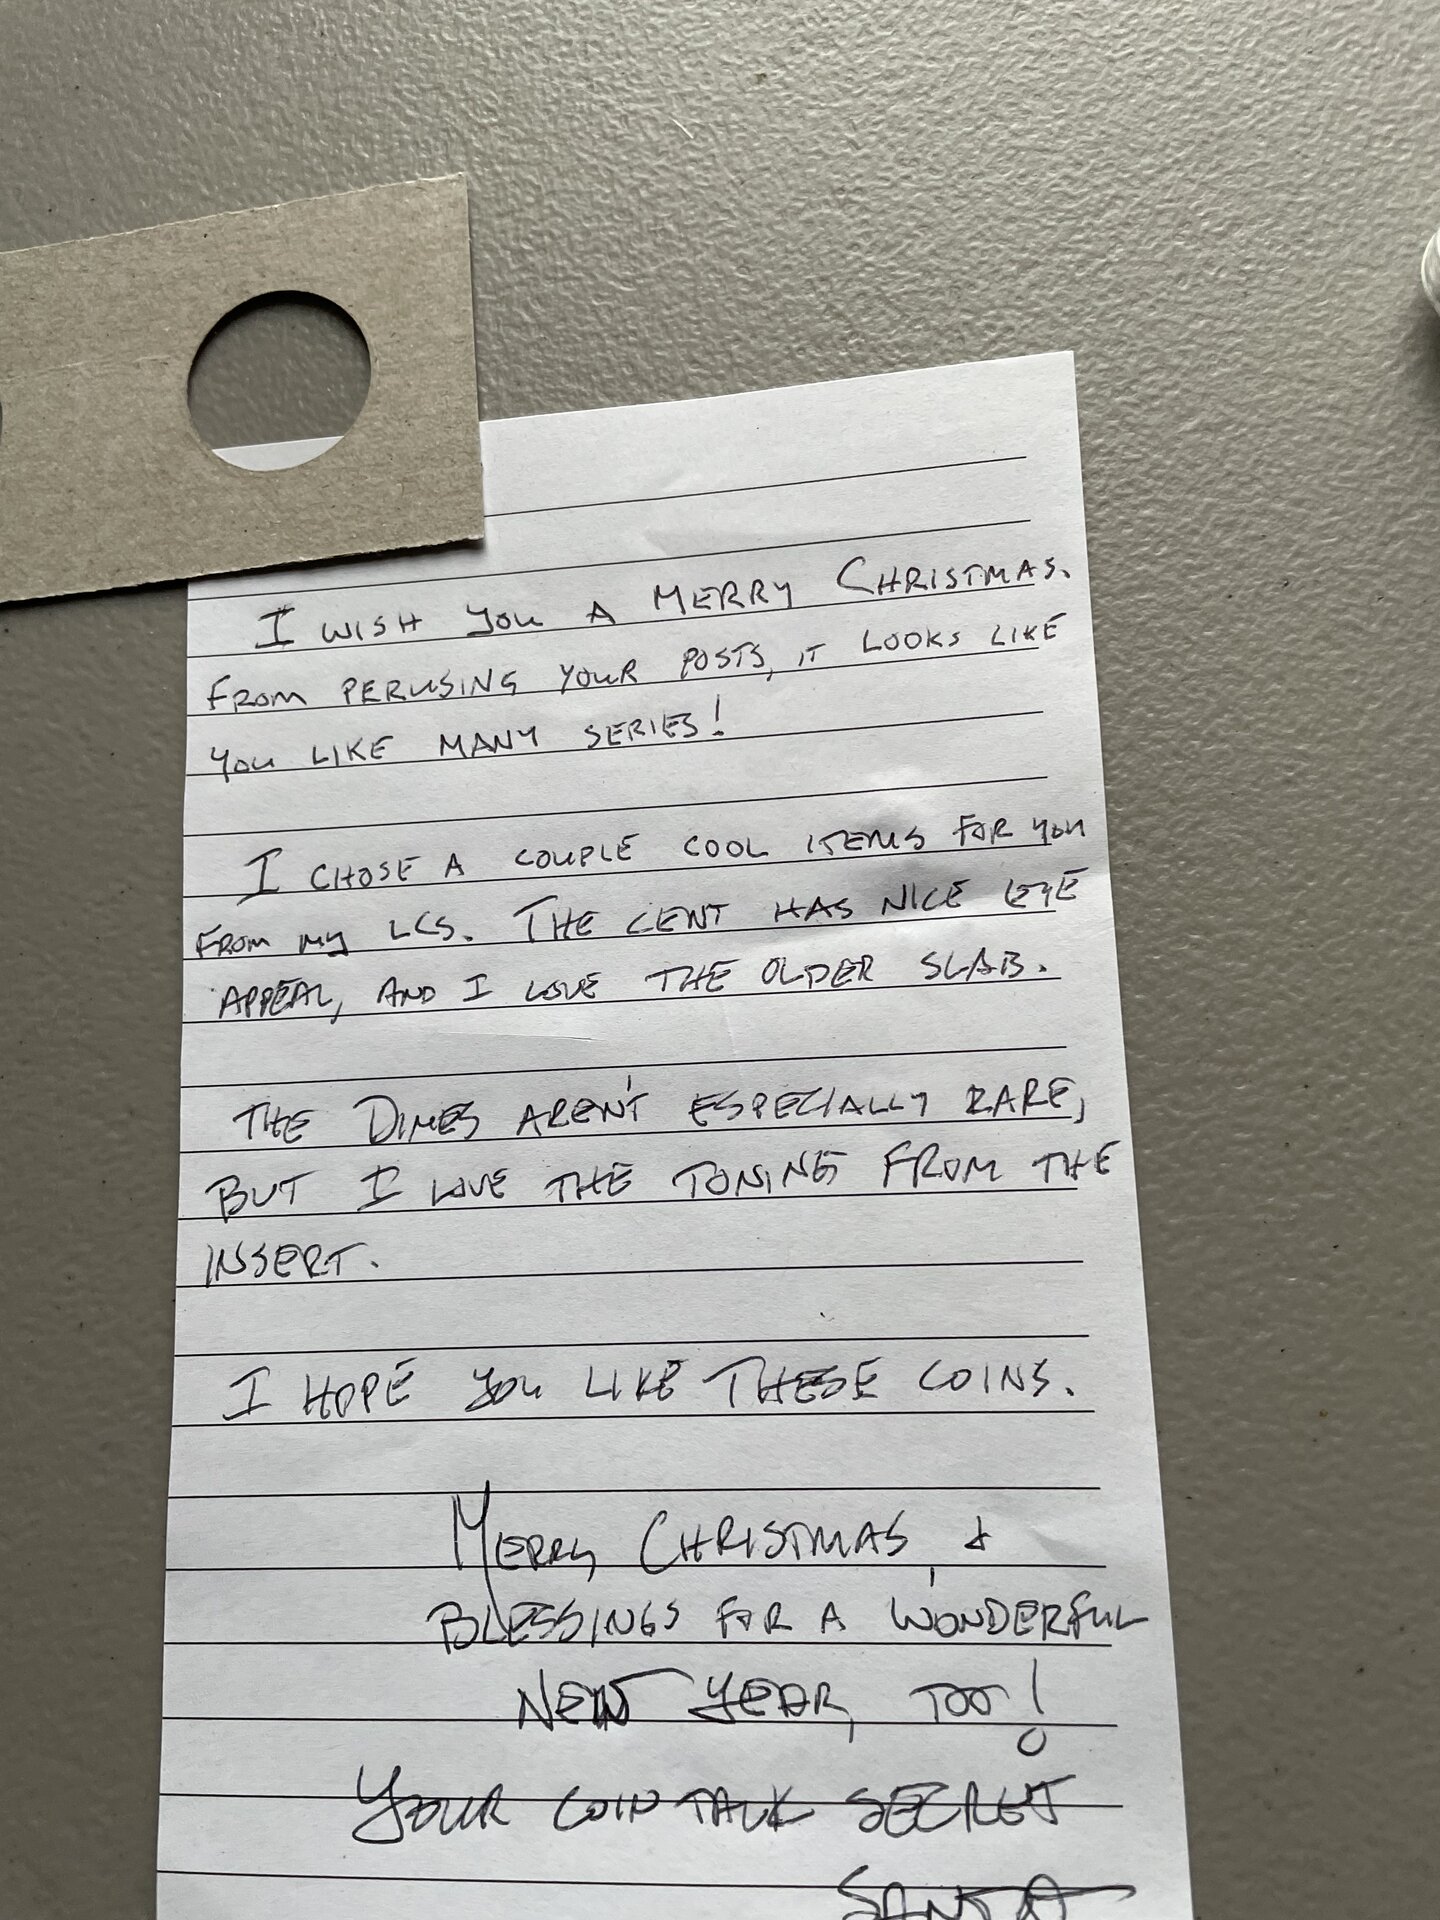 I WISH YOU A MERRY CHRISTMAS.
FROM PERUSING YOUR POSTS, IT LOOKS LIKE
YOU LIKE MANY SERIES!
I CHOSE A COUPLE COOL ITEMS FOR YOU
FROM MY LCS. THE CENT HAS NICE EYE
APPEAL, AND I LOVE THE OLDER SLAB.
THE DIMES AREN'T ESPECIALLY RARE,
BUT I LOVE THE TONING FROM THE
INSERT.
I HOPE YOU LIKE THESE COINS.
MERRY CHRISTMAS &
BLESSINGS FOR A WONDERFUL
NEW YEAR, TOO!
YOUR COIN TALK SECRET
SANTA